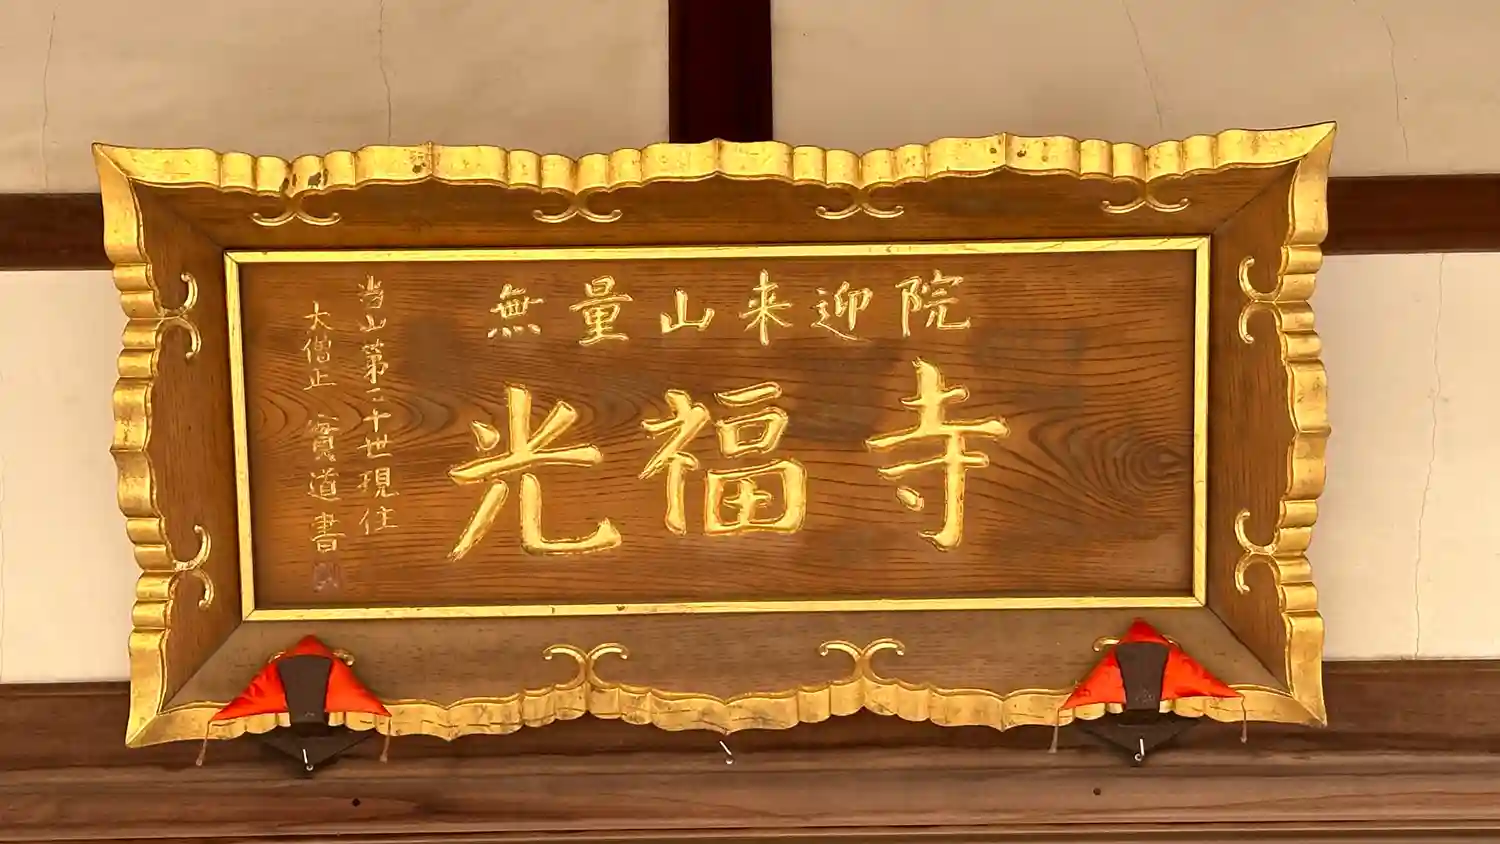 無量山来迎院
光福寺
当山第二十世現住
大僧正 實道書